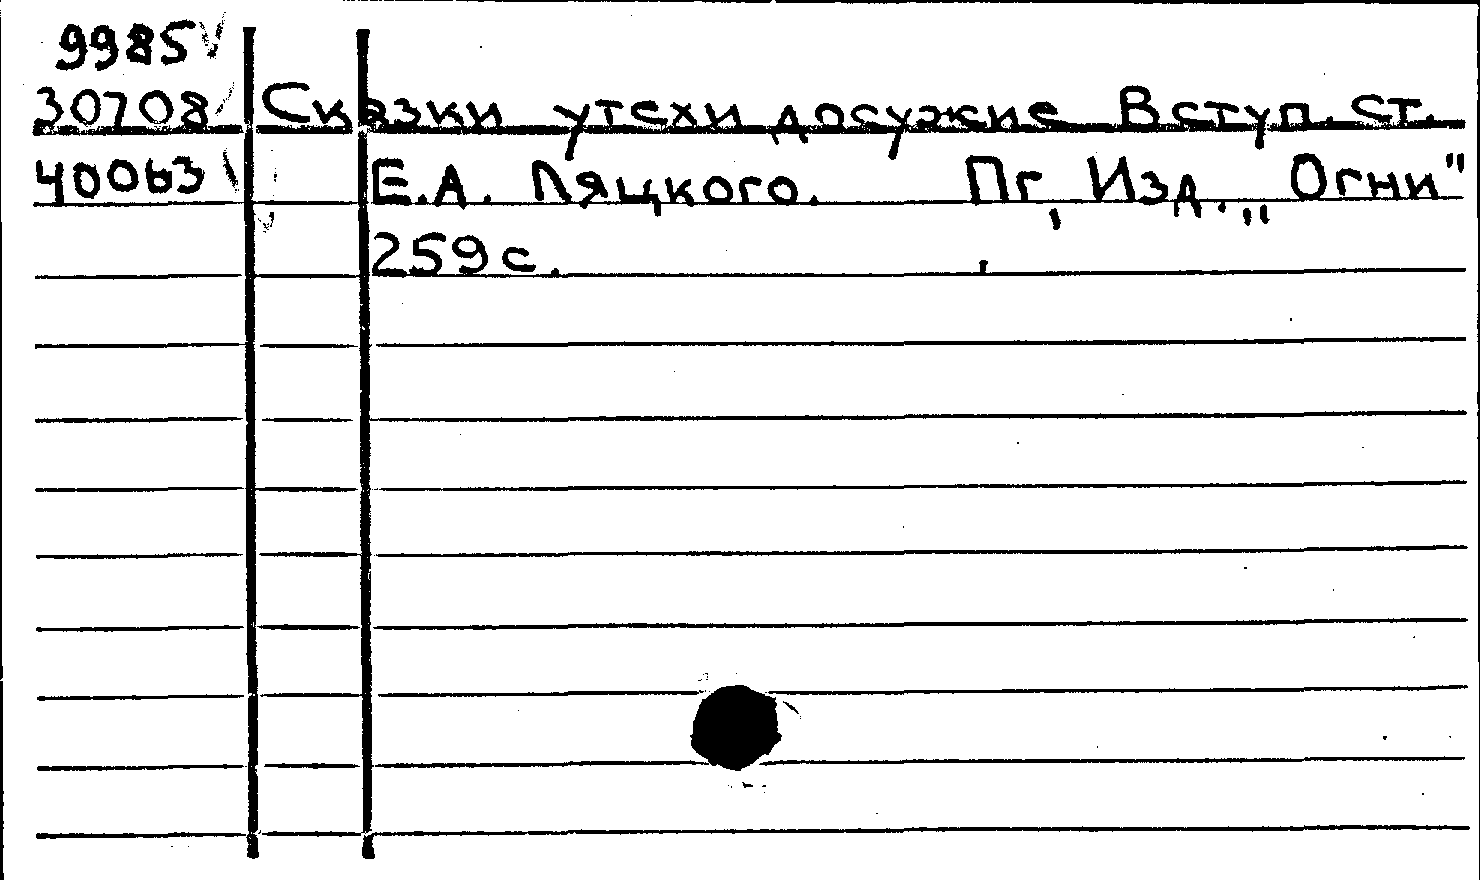 9985
30708 Сказки утехи досужие Вступ. ст.
40063 Е.А. Ляцкого. Пг, Изд. „Огни"
259 с.